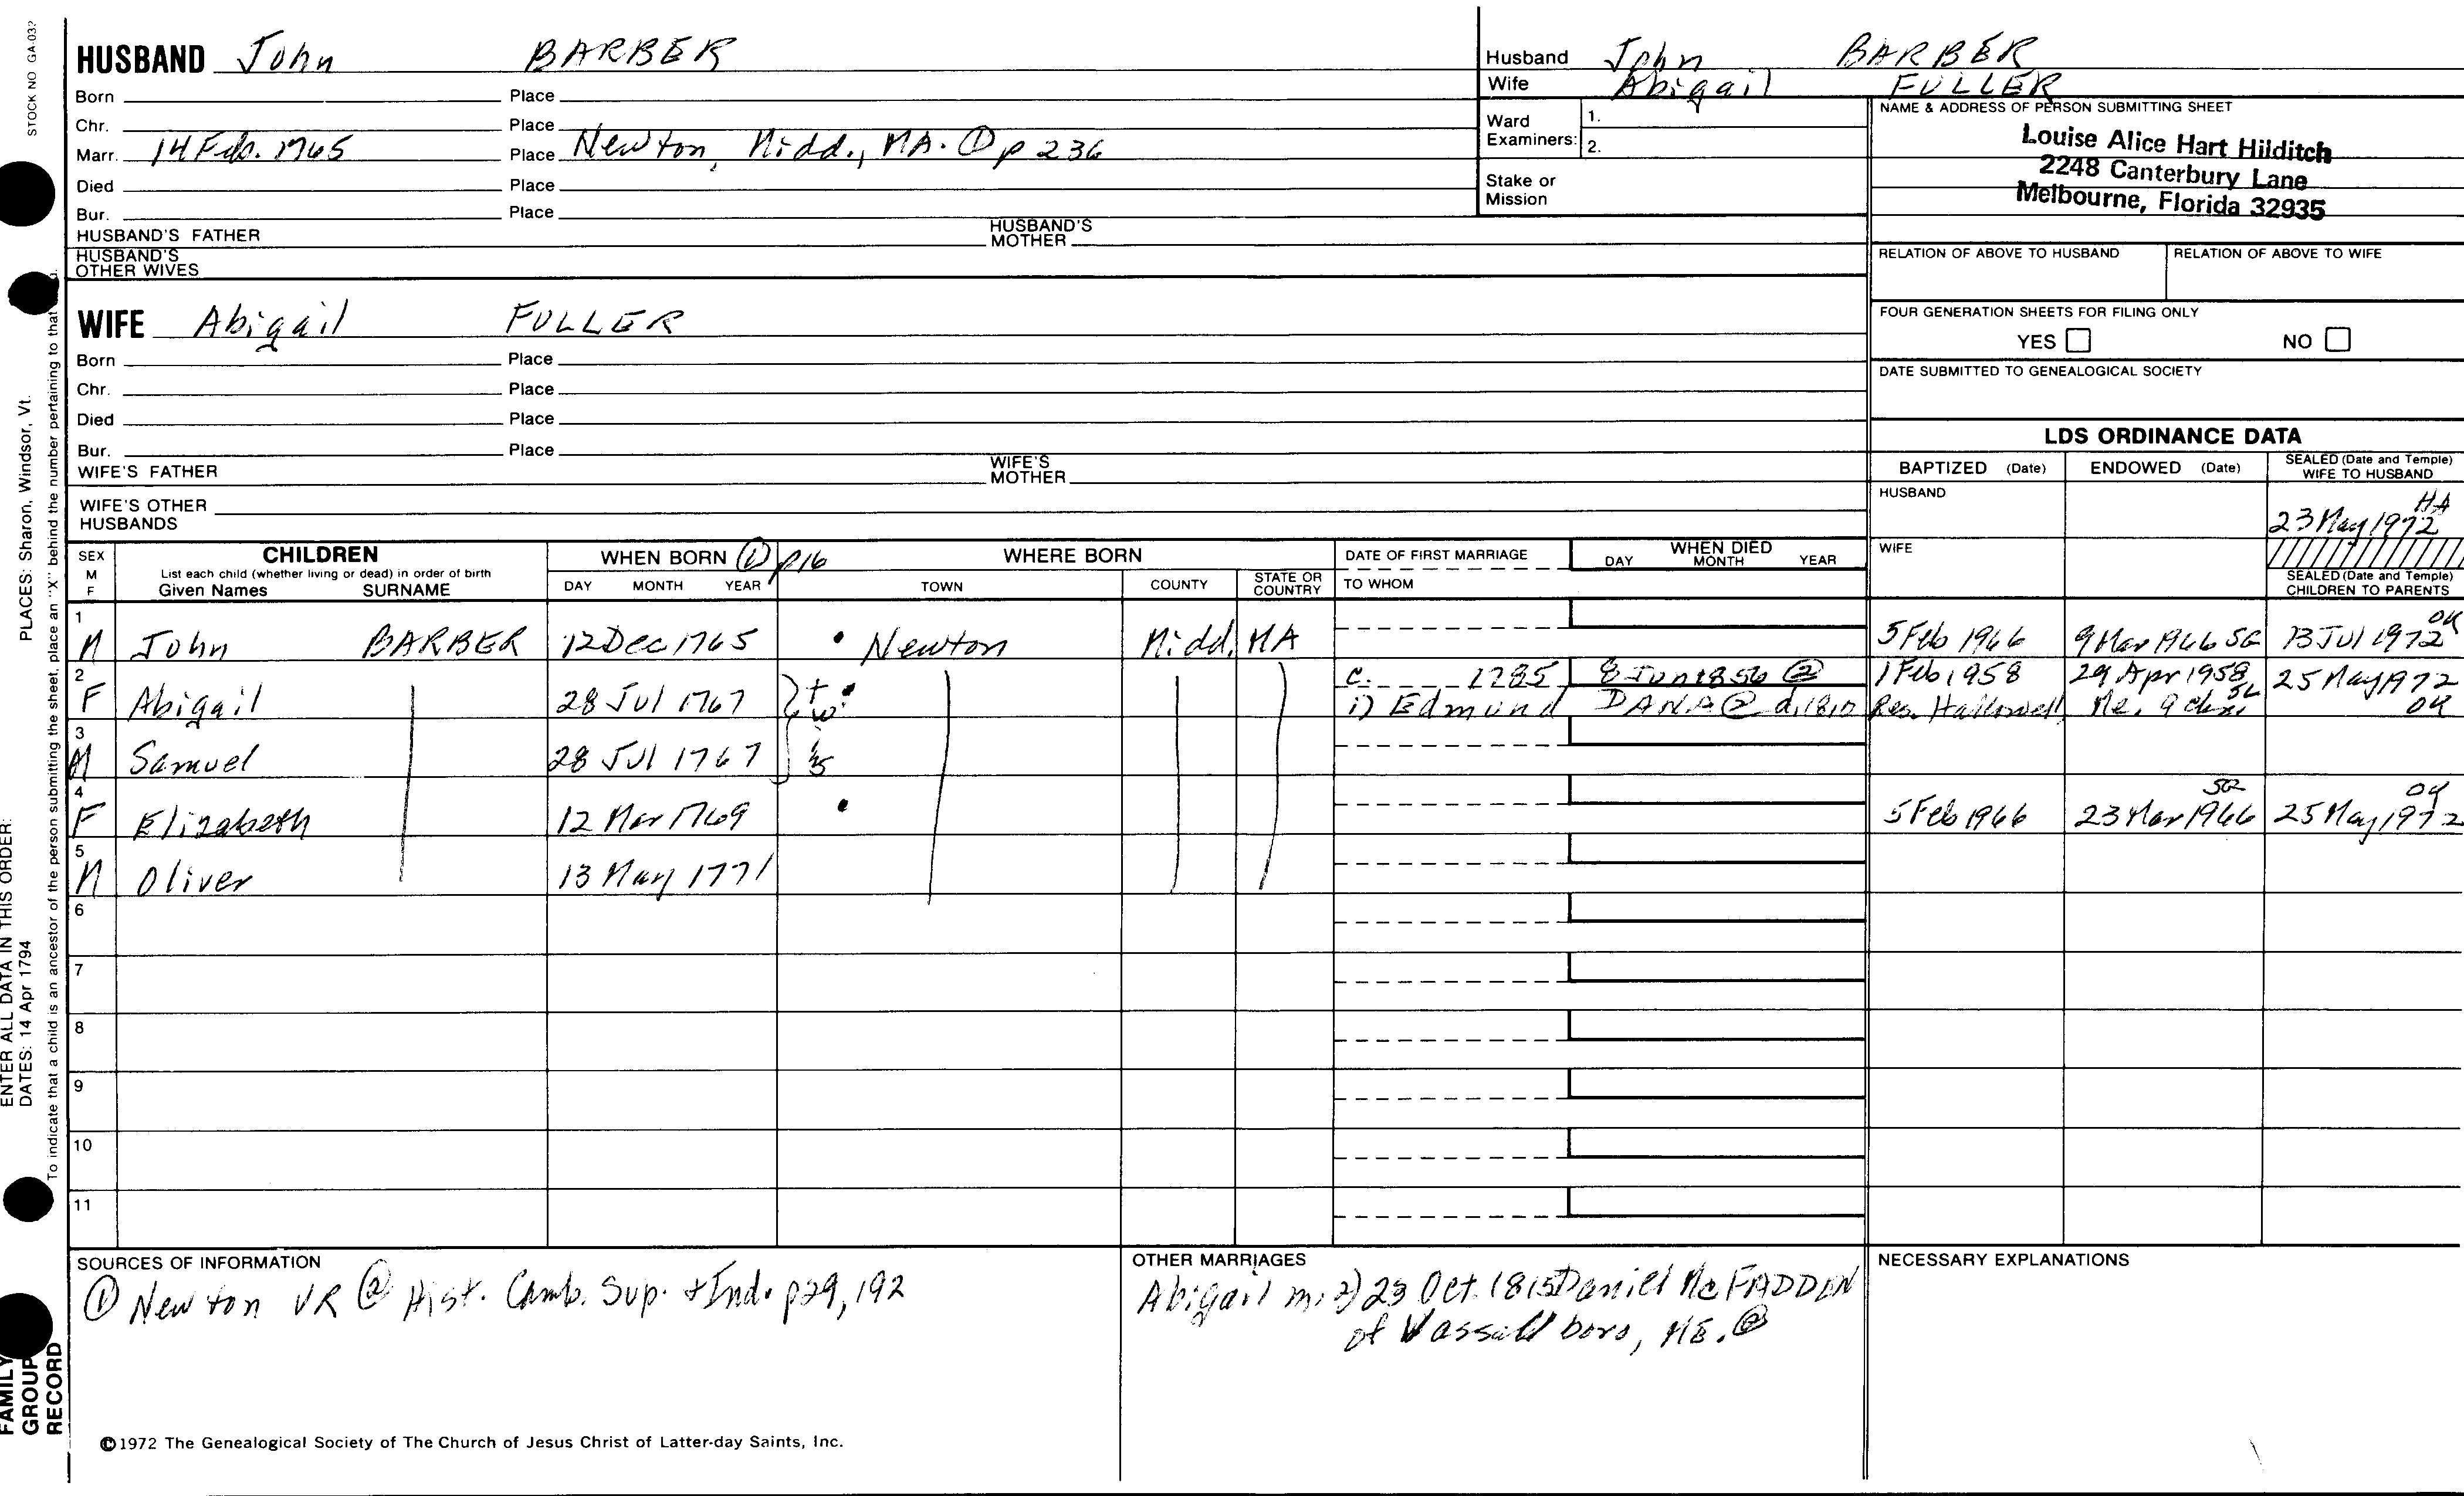 STOCK NO GA-03?
HUSBAND John BARBER
Born Place
Chr. Place
Marr. 14 Feb. 1765 Place Newton, Midd., MA. ① p 236
Died Place
Bur. Place
HUSBAND'S FATHER HUSBAND'S MOTHER
HUSBAND'S OTHER WIVES
WIFE Abigail FULLER
Born Place
Chr. Place
Died Place
Bur. Place
WIFE'S FATHER WIFE'S MOTHER
WIFE'S OTHER HUSBANDS
Husband John BARBER
Wife Abigail FULLER
Ward Examiners: 1.
2.
Stake or Mission
NAME & ADDRESS OF PERSON SUBMITTING SHEET
Louise Alice Hart Hilditch
2248 Canterbury Lane
Melbourne, Florida 32935
RELATION OF ABOVE TO HUSBAND RELATION OF ABOVE TO WIFE
FOUR GENERATION SHEETS FOR FILING ONLY
YES NO
DATE SUBMITTED TO GENEALOGICAL SOCIETY
LDS ORDINANCE DATA
BAPTIZED (Date) ENDOWED (Date) SEALED (Date and Temple) WIFE TO HUSBAND
HUSBAND
HA
23 May 1972
WIFE
SEALED (Date and Temple) CHILDREN TO PARENTS
SEX M F
CHILDREN
List each child (whether living or dead) in order of birth
Given Names SURNAME
WHEN BORN ① p16
DAY MONTH YEAR
WHERE BORN
TOWN COUNTY STATE OR COUNTRY
DATE OF FIRST MARRIAGE
TO WHOM
WHEN DIED
DAY MONTH YEAR
1 M John BARBER 12 Dec 1765 • Newton Midd. MA 5 Feb 1966 9 Mar 1966 SG 13 Jul 1972 OK
2 F Abigail 28 Jul 1767 tw • c. 1785 8 Jun 1856 ② 1 Feb 1958 29 Apr 1958 SL 25 May 1972 OK
1) Edmund DANA ② d. 1810 Res. Hallowell Me. 9 ch.
3 M Samuel 28 Jul 1767
4 F Elizabeth 12 Mar 1769 • 5 Feb 1966 23 Mar 1966 25 May 1972
5 M Oliver 13 May 1771
6
7
8
9
10
11
SOURCES OF INFORMATION
① Newton VR ② Hist. Camb. Sup. + Ind. p29, 192
OTHER MARRIAGES
Abigail m. 2) 23 Oct. 1815 Daniel McFADDEN
of Vassalboro, ME. ②
NECESSARY EXPLANATIONS
©1972 The Genealogical Society of The Church of Jesus Christ of Latter-day Saints, Inc.
ENTER ALL DATA IN THIS ORDER:
DATES: 14 Apr 1794 PLACES: Sharon, Windsor, Vt.
To indicate that a child is an ancestor of the person submitting the sheet, place an "X" behind the number pertaining to that
FAMILY
GROUP
RECORD